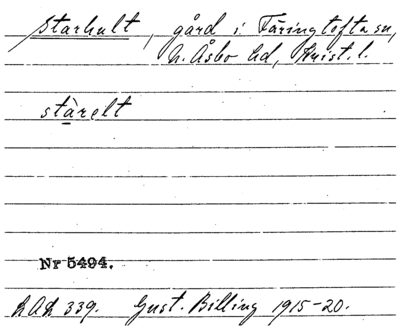 Starhult, gård i Färingtofta sn,
N. Åsbo hd, Krist. l.
stàrelt
Nr 5494.
339. Gust. Billing 1915-20.